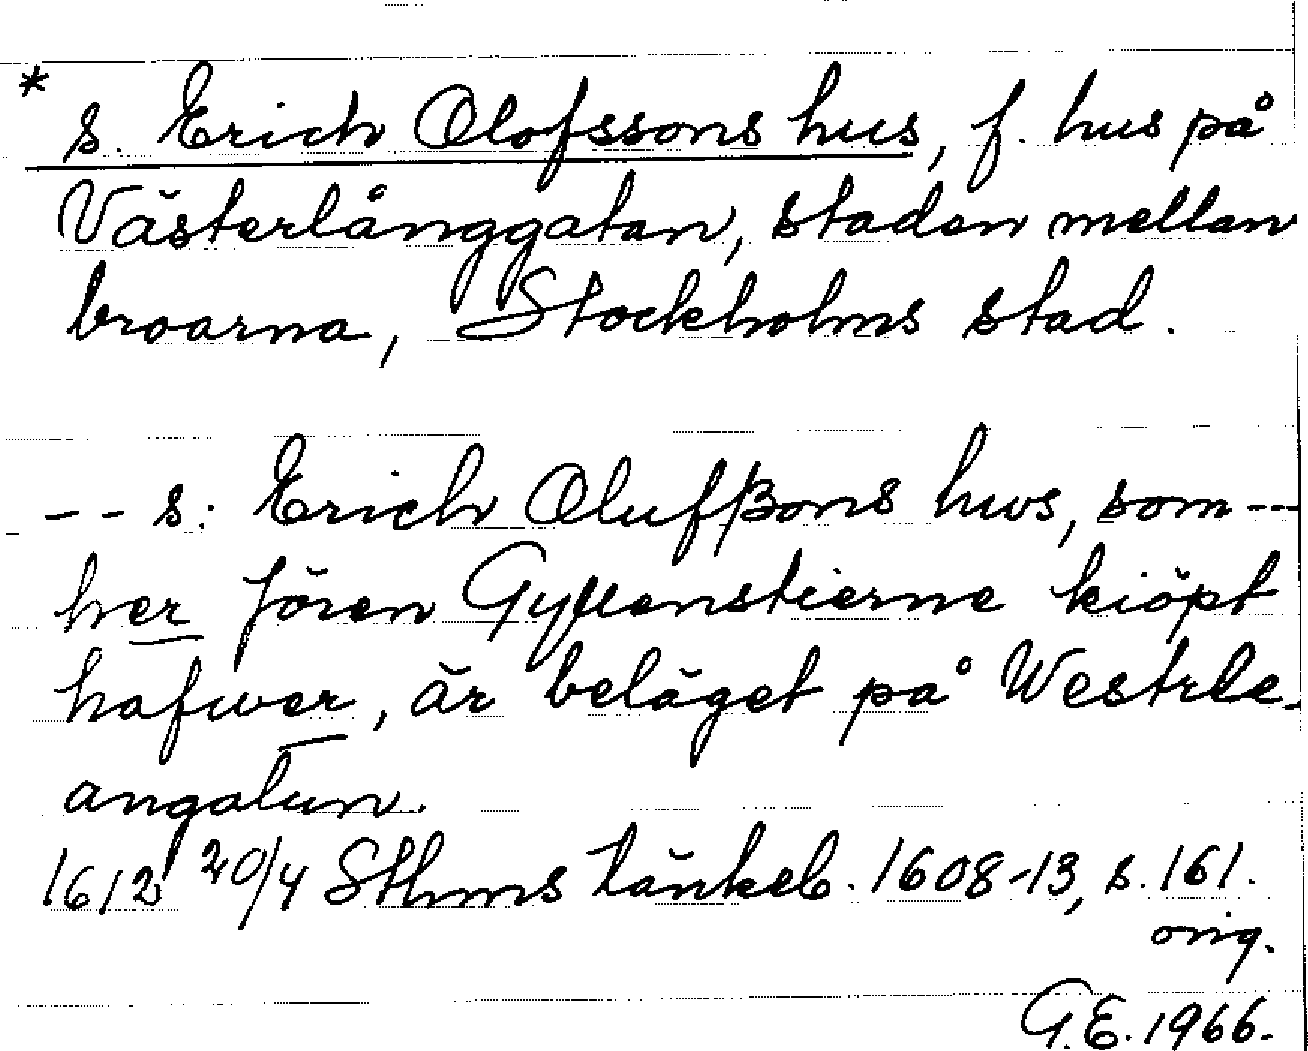 * s. Erich Olofssons hus, f. hus på
Västerlånggatan, staden mellan
broarna, Stockholms stad.
-- s: Erich Olufßons hws, som --
her Jören Gyllenstierne kiöpt
hafwer, är beläget på Westrle-
angatun.
1612 20/4 Sthms tänkeb. 1608-13, s. 161.
orig.
G.E. 1966.